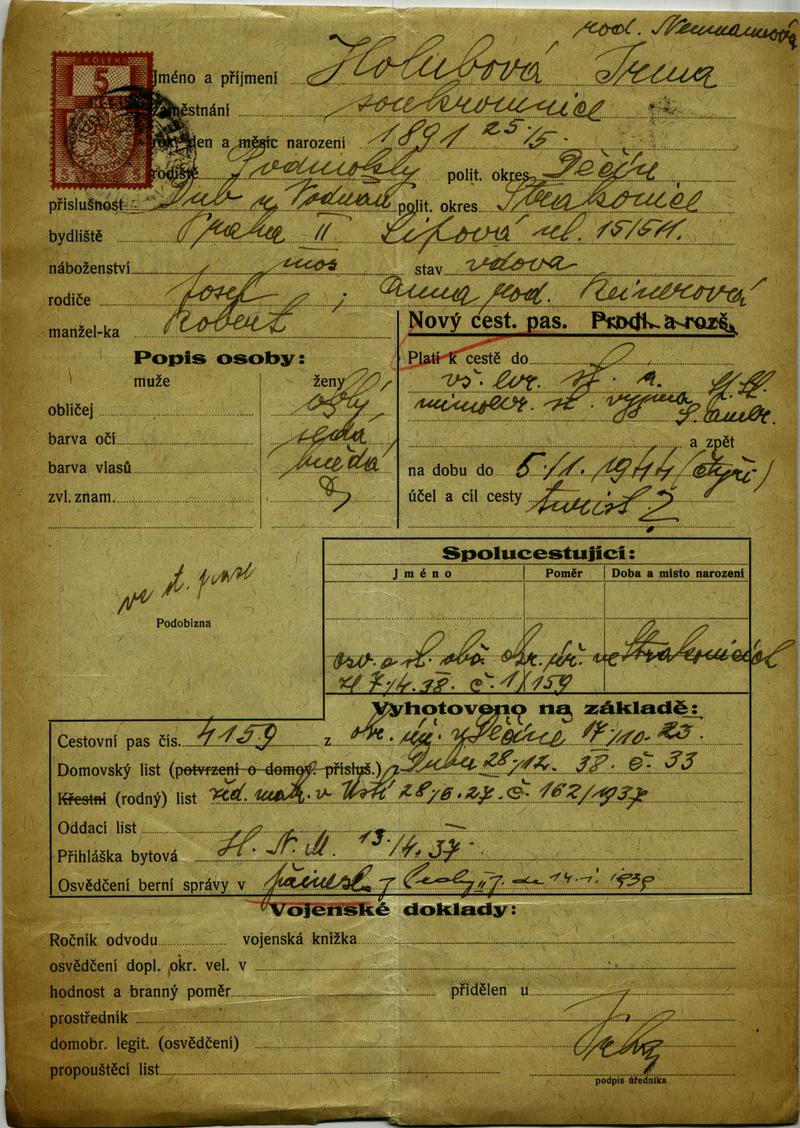 rod. Neumannová
KOLEK
5
Jméno a příjmení Holubová Irma
zaměstnání soukromnice
rok, den a měsíc narození 1891 25/5.
rodiště Podmokly polit. okres Děčín
příslušnost Dub u Vodňan polit. okres Strakonice
bydliště Praha II Lípová ul. 15/511.
náboženství mos stav vdova
rodiče Josef ; Anna rod. Reinerová
manžel-ka Robert
Nový cest. pas. Prodl. a rozš.
Popis osoby:
muže ženy
obličej oválný
barva očí šedá
barva vlasů hnědá
zvl. znam.
Platí k cestě do
vš. evr. st. a
mimoevr. st. vyjma
a zpět
na dobu do 5./1. 1944 (čtyři)
účel a cíl cesty turist ?
ve st. pase
Podobizna
Spolucestující:
Jméno Poměr Doba a místo narození
osv. o st. obč. okr. úř. ve Strakonicích
7/4.38. č. 1/159
Vyhotoveno na základě:
Cestovní pas čís. 4159 z okr. úř. v Děčíně 17/10.23.
Domovský list (potvrzení o domov. přísluš.) z Dubu 28./12. 38. č. 33
Křestní (rodný) list žid. matr. v Ústí 28/6.27. č. 162/1937
Oddací list
Přihláška bytová H. N. M. 13./4. 37.
Osvědčení berní správy v II 14.1. 1939
Vojenské doklady:
Ročník odvodu vojenská knížka
osvědčení dopl. okr. vel. v
hodnost a branný poměr přidělen u
prostředník
domobr. legit. (osvědčení)
propouštěcí list
podpis úředníka